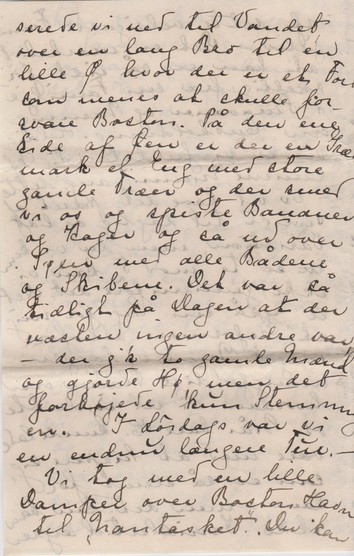 serede vi ned til Vandet
over en lang Bro til en
lille Ø hvor der er et Fort
som menes at skulle for-
svare Boston. På den ene
Side af Øen er der en Græs
mark el Eng med store
gamle Træer og der smed
vi os og spiste Bananer
og Kager og så ud over
Søen med alle Bådene
og Skibene. Det var så
tidligt på Dagen at der
næsten ingen andre var
– der gik to gamle Mænd
og gjorde Hø – men det
forhøjede kun Stemning
en. I Lørdags var vi
en endnu længere Tur. –
Vi tog med en lille
Damper over Boston Havn
til "Nantasket". Du kan